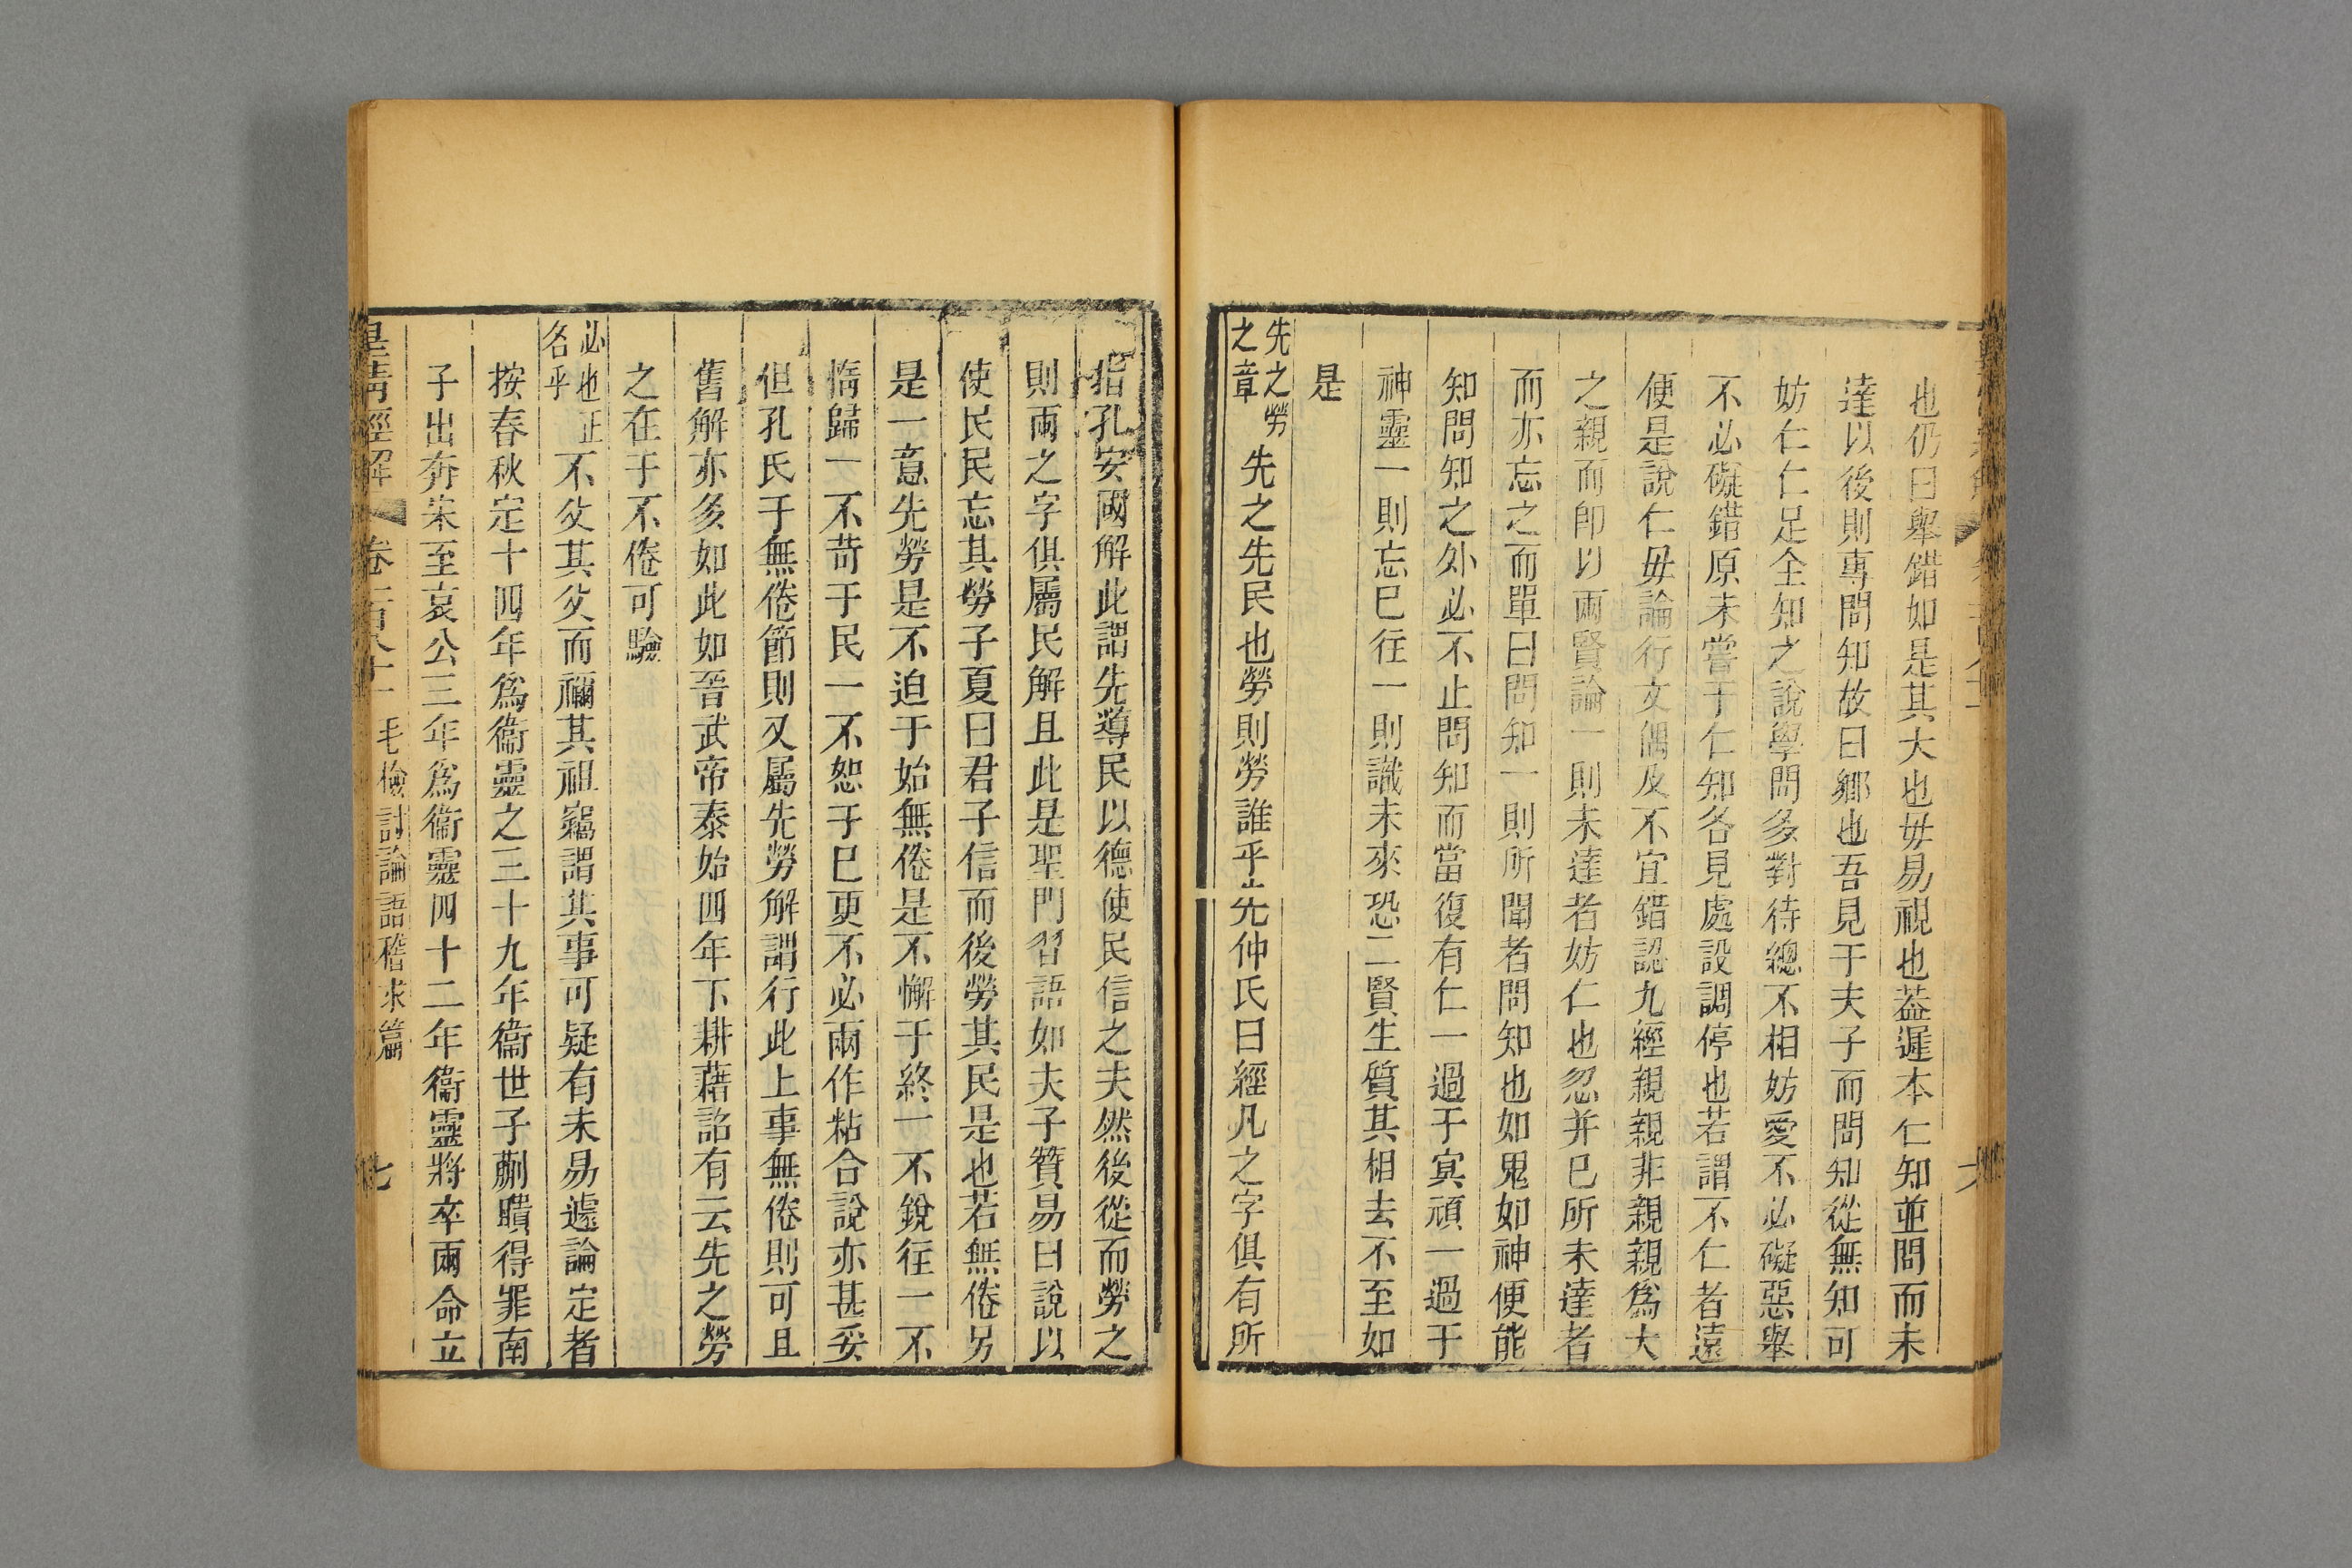 也仍曰舉錯如是其大也毋易視也葢遲本仁知並問而未
達以後則專問知故曰鄉也吾見于夫子而問知從無知可
妨仁仁足全知之說學問多對待總不相妨愛不必礙惡舉
不必礙錯原未嘗于仁知各見處設調停也若謂不仁者遠
便是說仁毋論行文偶及不宜錯認九經親親非親親爲大
之親而卽以兩賢論一則未達者妨仁也忽并已所未達者
而亦忘之而單曰問知一則所聞者問知也如鬼如神便能
知問知之外必不止問知而當復有仁一過于寞頑一過于
神靈一則忘已往一則識未來恐二賢生質其相去不至如
是
先之勞之章 先之先民也勞則勞誰乎先仲氏曰經凡之字俱有所
指孔安國解此謂先導民以德使民信之夫然後從而勞之
則兩之字俱屬民解且此是聖門習語如夫子贊易曰說以
使民民忘其勞子夏曰君子信而後勞其民是也若無倦另
是一意先勞是不迫于始無倦是不懈于終一不銳往一不
惰歸一不苛于民一不恕于已更不必兩作粘合說亦甚妥
但孔氏于無倦節則又屬先勞解謂行此上事無倦則可且
舊解亦多如此如晉武帝泰始四年下耕藉詔有云先之勞
之在于不倦可驗
必也正名乎 不父其父而禰其祖竊謂其事可疑有未易遽論定者
按春秋定十四年爲衞靈之三十九年衞世子蒯聵得罪南
子出奔宋至哀公三年爲衞靈四十二年衞靈將卒兩命立
皇清經解 卷一百八十一 毛檢討論語稽求篇 七